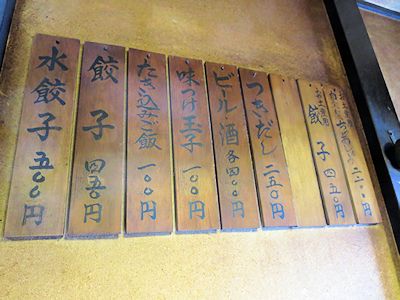 水餃子 五〇〇円
餃子 四五〇円
たき込みご飯 一〇〇円
味つけ玉子 一〇〇円
ビール 酒 各四〇〇円
つきだし 二五〇円
餃子 四五〇円
二二〇〇円